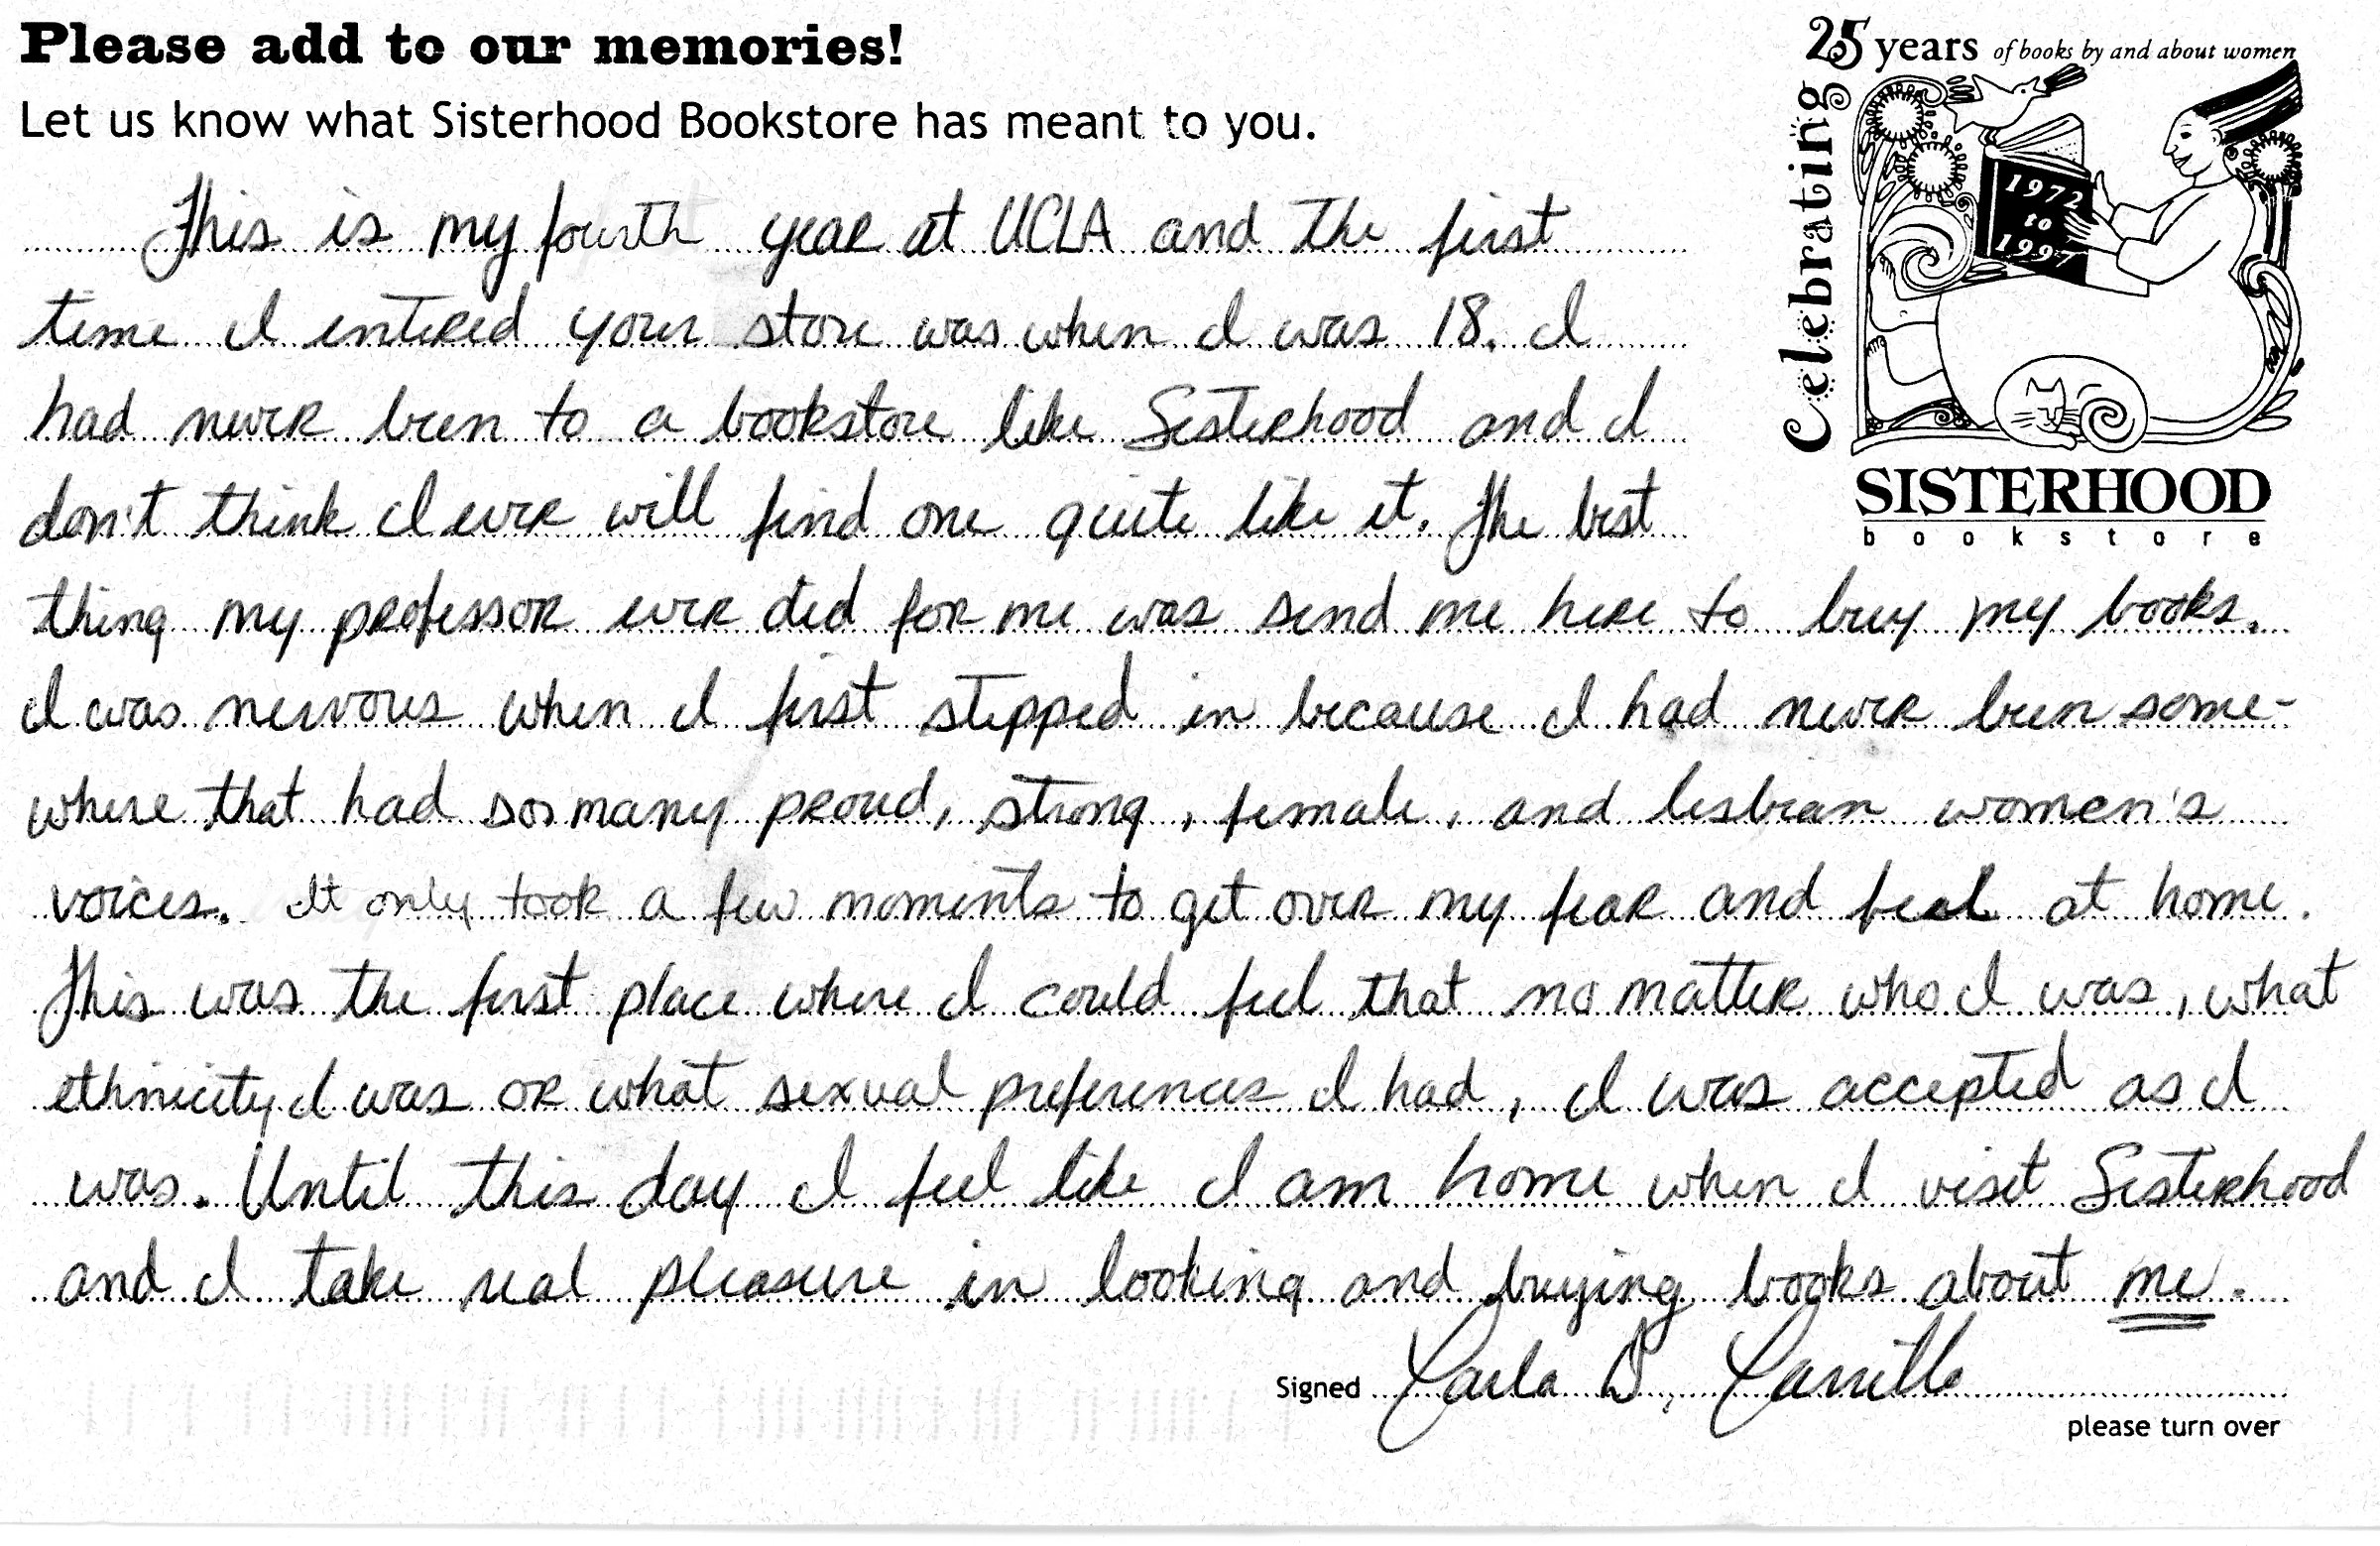 Please add to our memories!
Let us know what Sisterhood Bookstore has meant to you.
Celebrating
25 years of books by and about women
1972
to
1997
SISTERHOOD
bookstore
This is my fourth year at UCLA and the first
time I entered your store was when I was 18. I
had never been to a bookstore like Sisterhood and I
don't think I ever will find one quite like it. The best
thing my professor ever did for me was send me here to buy my books.
I was nervous when I first stepped in because I had never been some-
where that had so many proud, strong, female, and lesbian women's
voices. It only took a few moments to get over my fear and feel at home.
This was the first place where I could feel that no matter who I was, what
ethnicity I was or what sexual preferences I had, I was accepted as I
was. Until this day I feel like I am home when I visit Sisterhood
and I take real pleasure in looking and buying books about me.
Signed Carla D. Carrillo
please turn over